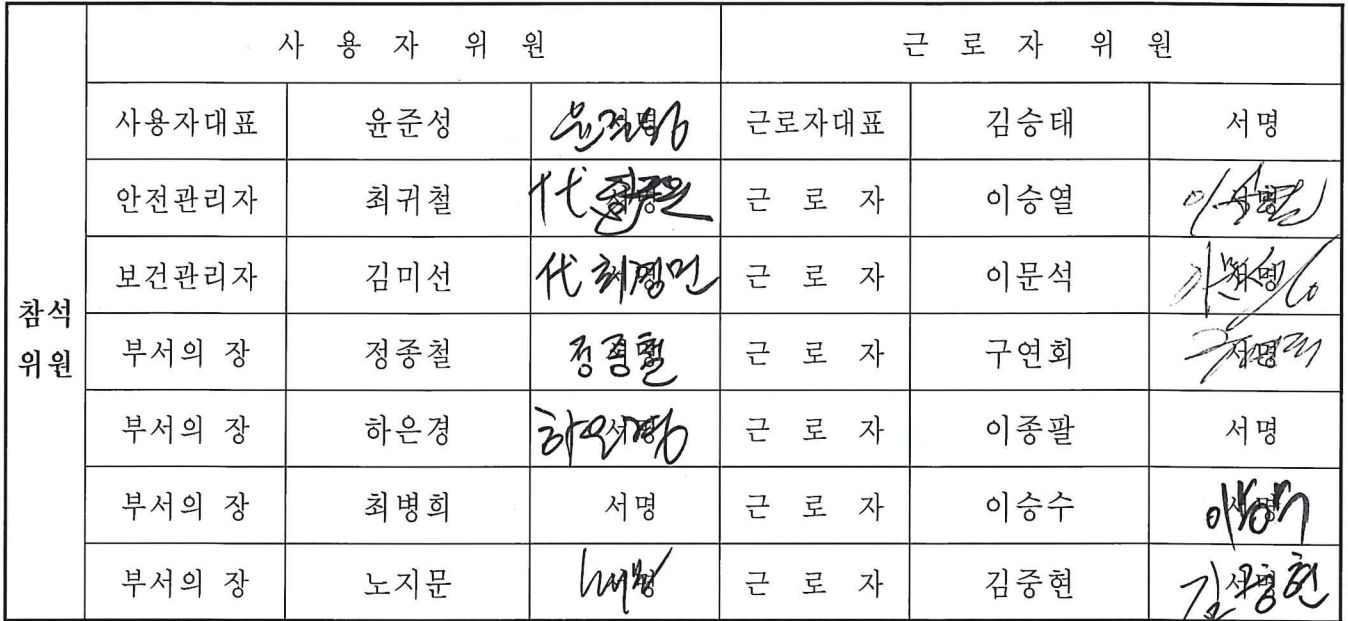 사 용 자 위 원 근 로 자 위 원
사용자대표 윤준성 근로자대표 김승태 서명
안전관리자 최귀철 代 근 로 자 이승열
보건관리자 김미선 代 최경민 근 로 자 이문석 서명
참석
위원
부서의 장 정종철 정종철 근 로 자 구연회 서명
부서의 장 하은경 하은경 근 로 자 이종팔 서명
부서의 장 최병희 서명 근 로 자 이승수
부서의 장 노지문 근 로 자 김중현 서명